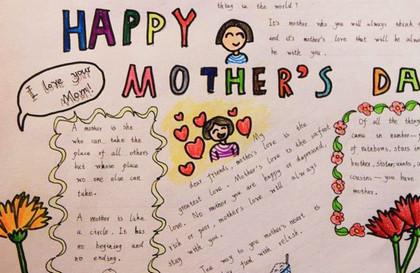 thing in the world?
It's mother who you will always think of
and it's mother's love that will be always
be with you.
HAPPY
MOTHER'S DA
I love you
Mom!
A mother is she
who can take the
place of all others
but whose place
no one else can
take.
A mother is like
a circle. It has
no begining and
no ending.
My
dear friend, mother's love is the
greatest love. Mother's love is the safest
love. No matter you are happy or depressed,
rich or poor, mother's love will always
stay with you.
The way to you mother's heart is
fed with relish.
Of all the thing
came in number
of rainbows, stars in
brother, sister, aunts,
cousins — you have
mother.